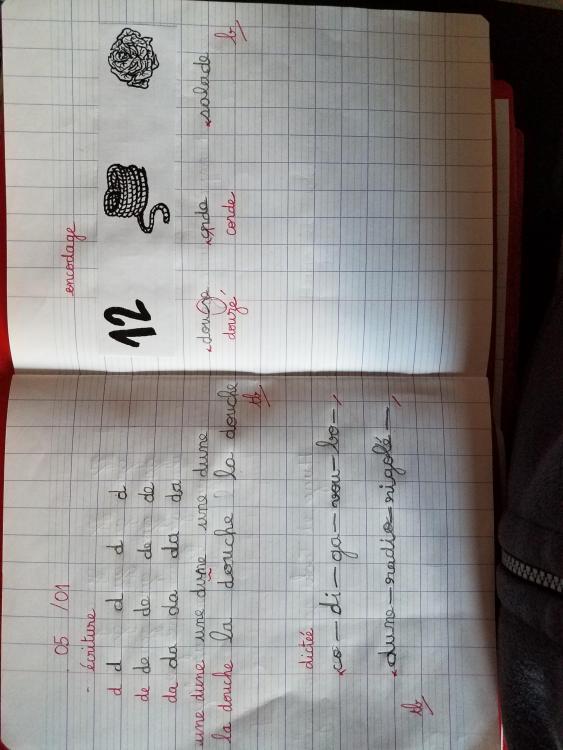 05 /01
- écriture
d d d d d d
de de de de de
da da da da da
une dune une dune une dune
la douche la douche la douche
tb
dictée
co – di – ga – vou – bo –
dune – radio – rigolé –
tb
encodage
12
douze salade
douze corde
b